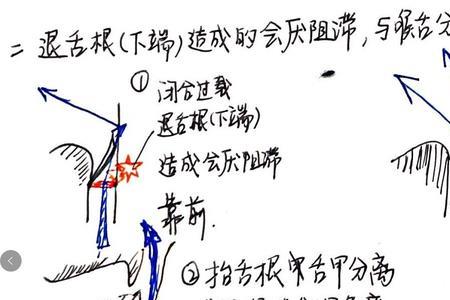 二 退舌根(下端)造成的会厌阻滞,与喉舌分
① 闭合过载
退舌根(下端)
造成会厌阻滞
靠前.
② 抬舌根 舌甲分离